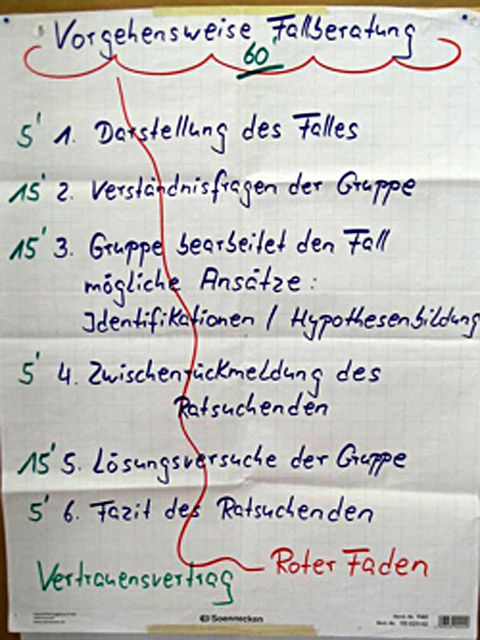 Vorgehensweise Fallberatung
60'
5' 1. Darstellung des Falles
15' 2. Verständnisfragen der Gruppe
15' 3. Gruppe bearbeitet den Fall
mögliche Ansätze:
Identifikationen / Hypothesenbildung
5' 4. Zwischenrückmeldung des
Ratsuchenden
15' 5. Lösungsversuche der Gruppe
5' 6. Fazit des Ratsuchenden
Roter Faden
Vertrauensvertrag
Soennecken